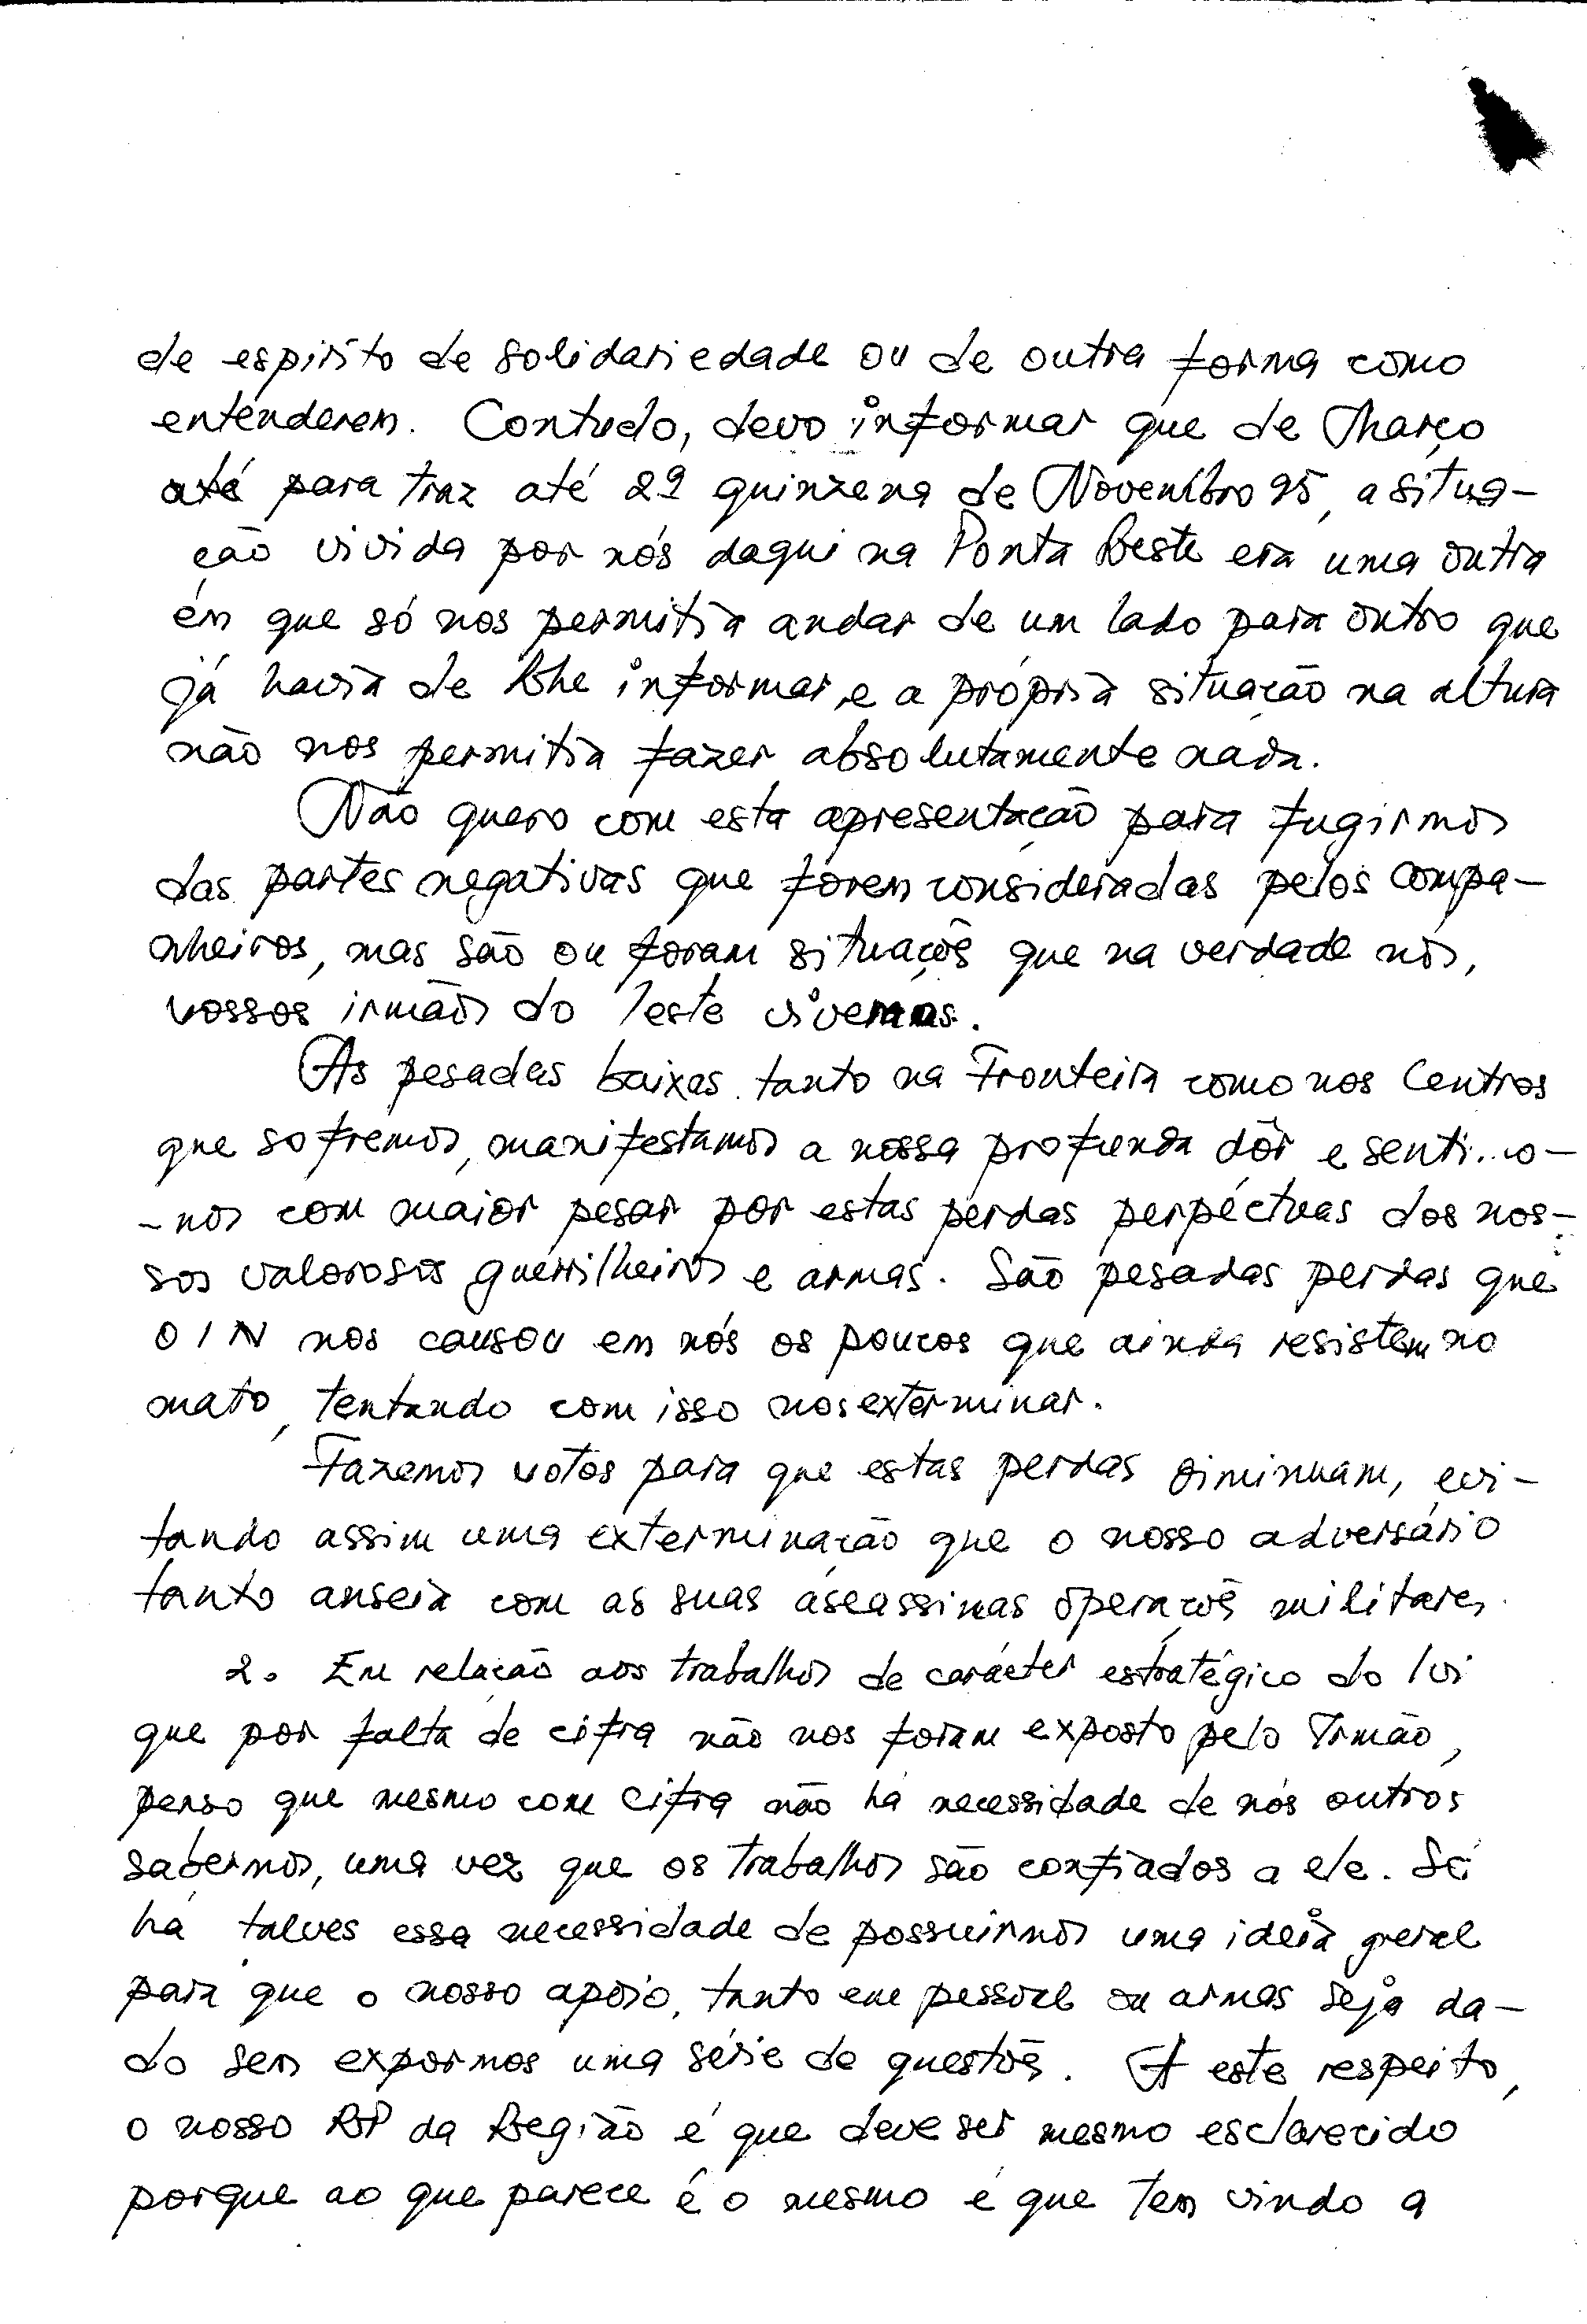 de espirito de solidariedade ou de outra forma como
entenderem. Contudo, devo informar que de Março
até para traz até 2ª quinzena de Novembro 95, a situa-
ção vivida por nós daqui na Ponta Leste era uma outra
em que só nos permitia andar de um lado para outro que
já havia de lhe informar, e a própria situação na altura
não nos permitia fazer absolutamente nada.
Não quero com esta apresentação para fugirmos
das partes negativas que forem consideradas pelos compa-
nheiros, mas são ou foram situaçõs que na verdade nós,
vossos irmãos do Leste vivemos.
As pesadas baixas tanto na Fronteira como nos Centros
que sofremos, manifestamos a nossa profunda dôr e
-nos com maior pesar por estas perdas perpéctuas dos nos-
sos valorosos guerrilheiros e armas. São pesadas perdas que
o IN nos causou em nós os poucos que ainda resistem no
mato, tentando com isso nos exterminar.
Fazemos votos para que estas perdas diminuam, evi-
tando assim uma exterminação que o nosso adversário
tanto anseia com as suas aseassinas operaçõs militares.
2. Em relação aos trabalhos de carácter estratégico do
que por falta de cifra não nos foram exposto pelo Irmão,
penso que mesmo com cifra não há necessidade de nós outros
sabermos, uma vez que os trabalhos são confiados a ele. Só
há talves essa necessidade de possuirmos uma ideia geral
para que o nosso apoio, tanto em pessoal ou armas seja da-
do sem expormos uma série de questõs. A este respeito,
o nosso da Região é que deve ser mesmo esclarecido
porque ao que parece é o mesmo é que tem vindo a